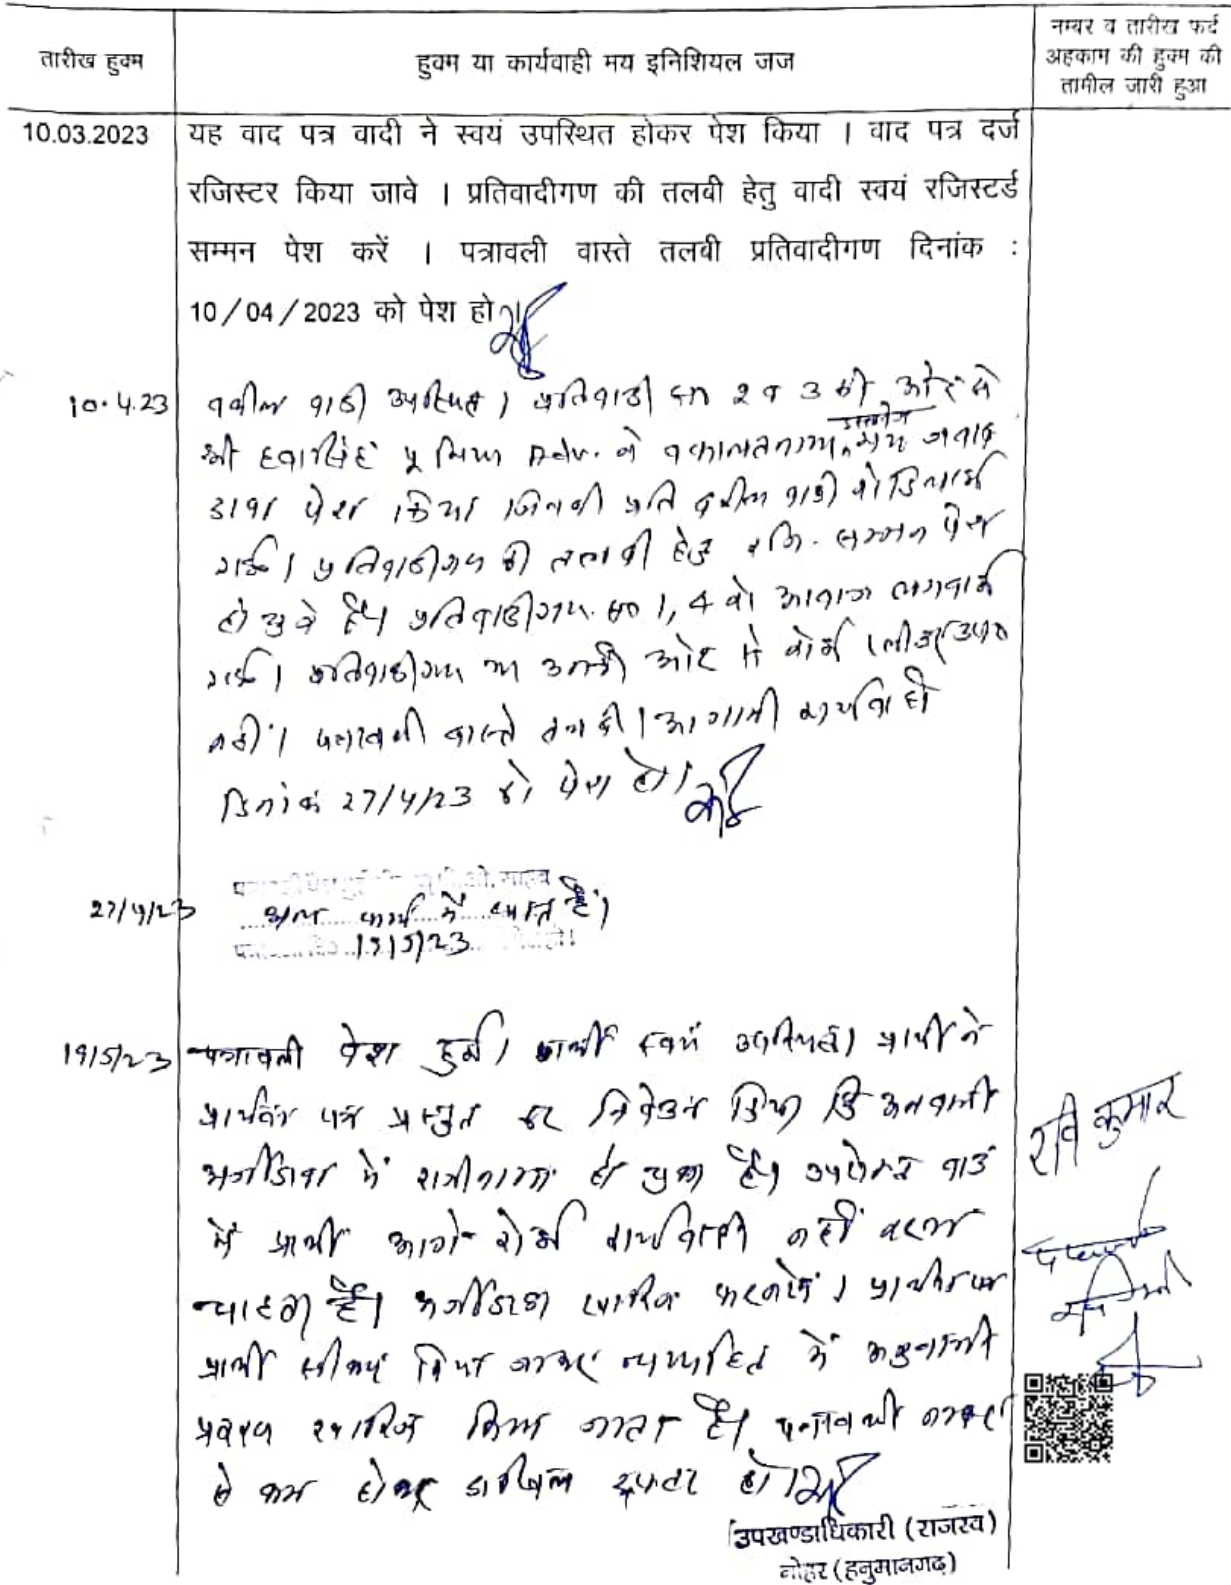 तारीख हुक्म
हुक्म या कार्यवाही मय इनिशियल जज
नम्बर व तारीख फर्द
अहकाम की हुक्म की
तामील जारी हुआ
10.03.2023 यह वाद पत्र वादी ने स्वयं उपस्थित होकर पेश किया । वाद पत्र दर्ज
रजिस्टर किया जावे । प्रतिवादीगण की तलबी हेतु वादी स्वयं रजिस्टर्ड
सम्मन पेश करें । पत्रावली वास्ते तलबी प्रतिवादीगण दिनांक :
10/04/2023 को पेश हो
10.4.23 वकील वादी उपस्थित। प्रतिवादी सं0 2 व 3 की ओर से
श्री हवासिंह पूनिया Adv. ने वकालतनामा मय जवाब
दावा पेश किया जिसकी प्रति वकील वादी को दिलाई
गई। प्रतिवादीगण की तलबी हेतु रजि. सम्मन पेश
हो चुके हैं। प्रतिवादीगण सं0 1, 4 को आवाज लगवाई
गई। प्रतिवादीगण या उनकी ओर से कोई उप0
नहीं। पत्रावली वास्ते तलबी। आगामी कार्यवाही
दिनांक 27/4/23 को पेश हो।
27/4/23 अन्य कार्य में व्यस्त है।
19/5/23
19/5/23 पत्रावली पेश हुई। प्रार्थी स्वयं उपस्थित। प्रार्थी ने
प्रार्थना पत्र प्रस्तुत कर निवेदन किया कि
अर्जीदावा में राजीनामा हो चुका है। उपरोक्त वाद
में प्रार्थी आगे कोई कार्यवाही नहीं करना
चाहता है। अर्जीदावा खारिज फरमावें। प्रार्थना पत्र
प्रार्थी स्वीकार किया जाकर न्यायहित में
प्रकरण खारिज किया जाता है। पत्रावली नम्बर
से कम होकर दाखिल दफ्तर हो।
रवि कुमार
उपखण्डाधिकारी (राजस्व)
नोहर (हनुमानगढ़)